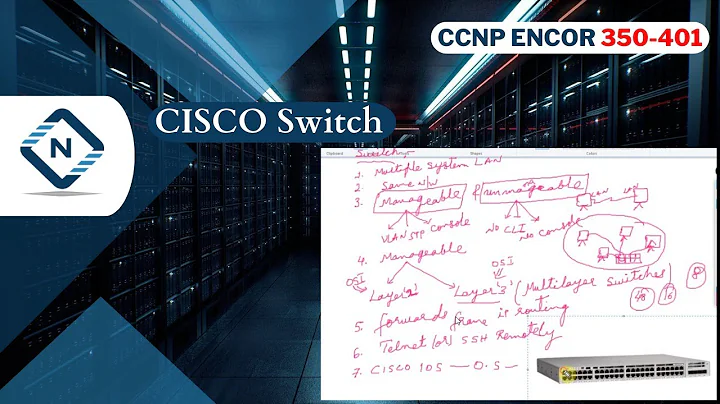 CCNP ENCOR 350-401
N
CISCO Switch
Clipboard
Shapes
Colors
Switch
1. Multiple System LAN
2. Same N/W
3. Manageable & unmanageable
LAN LAN
VLAN STP Console
NO CLI NO Console
4. Manageable
OSI OSI
Layer '2' Layer '3' (Multilayer Switches)
8
48 16
5. forwards frame is routing
6. Telnet (or) SSH Remotely
7. CISCO IOS — O.S —